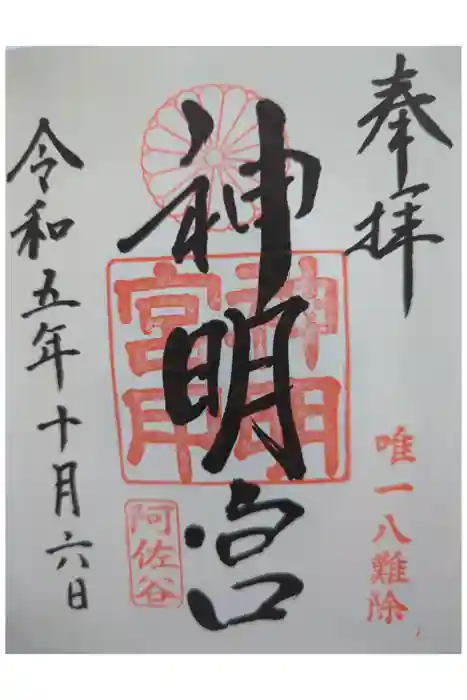 奉拝
唯一八難除
神明宮
神明宮印
阿佐谷
令和五年十月六日